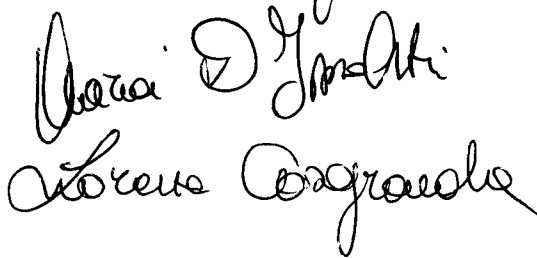 Maria D'Ippoliti
Lorena Casagrande